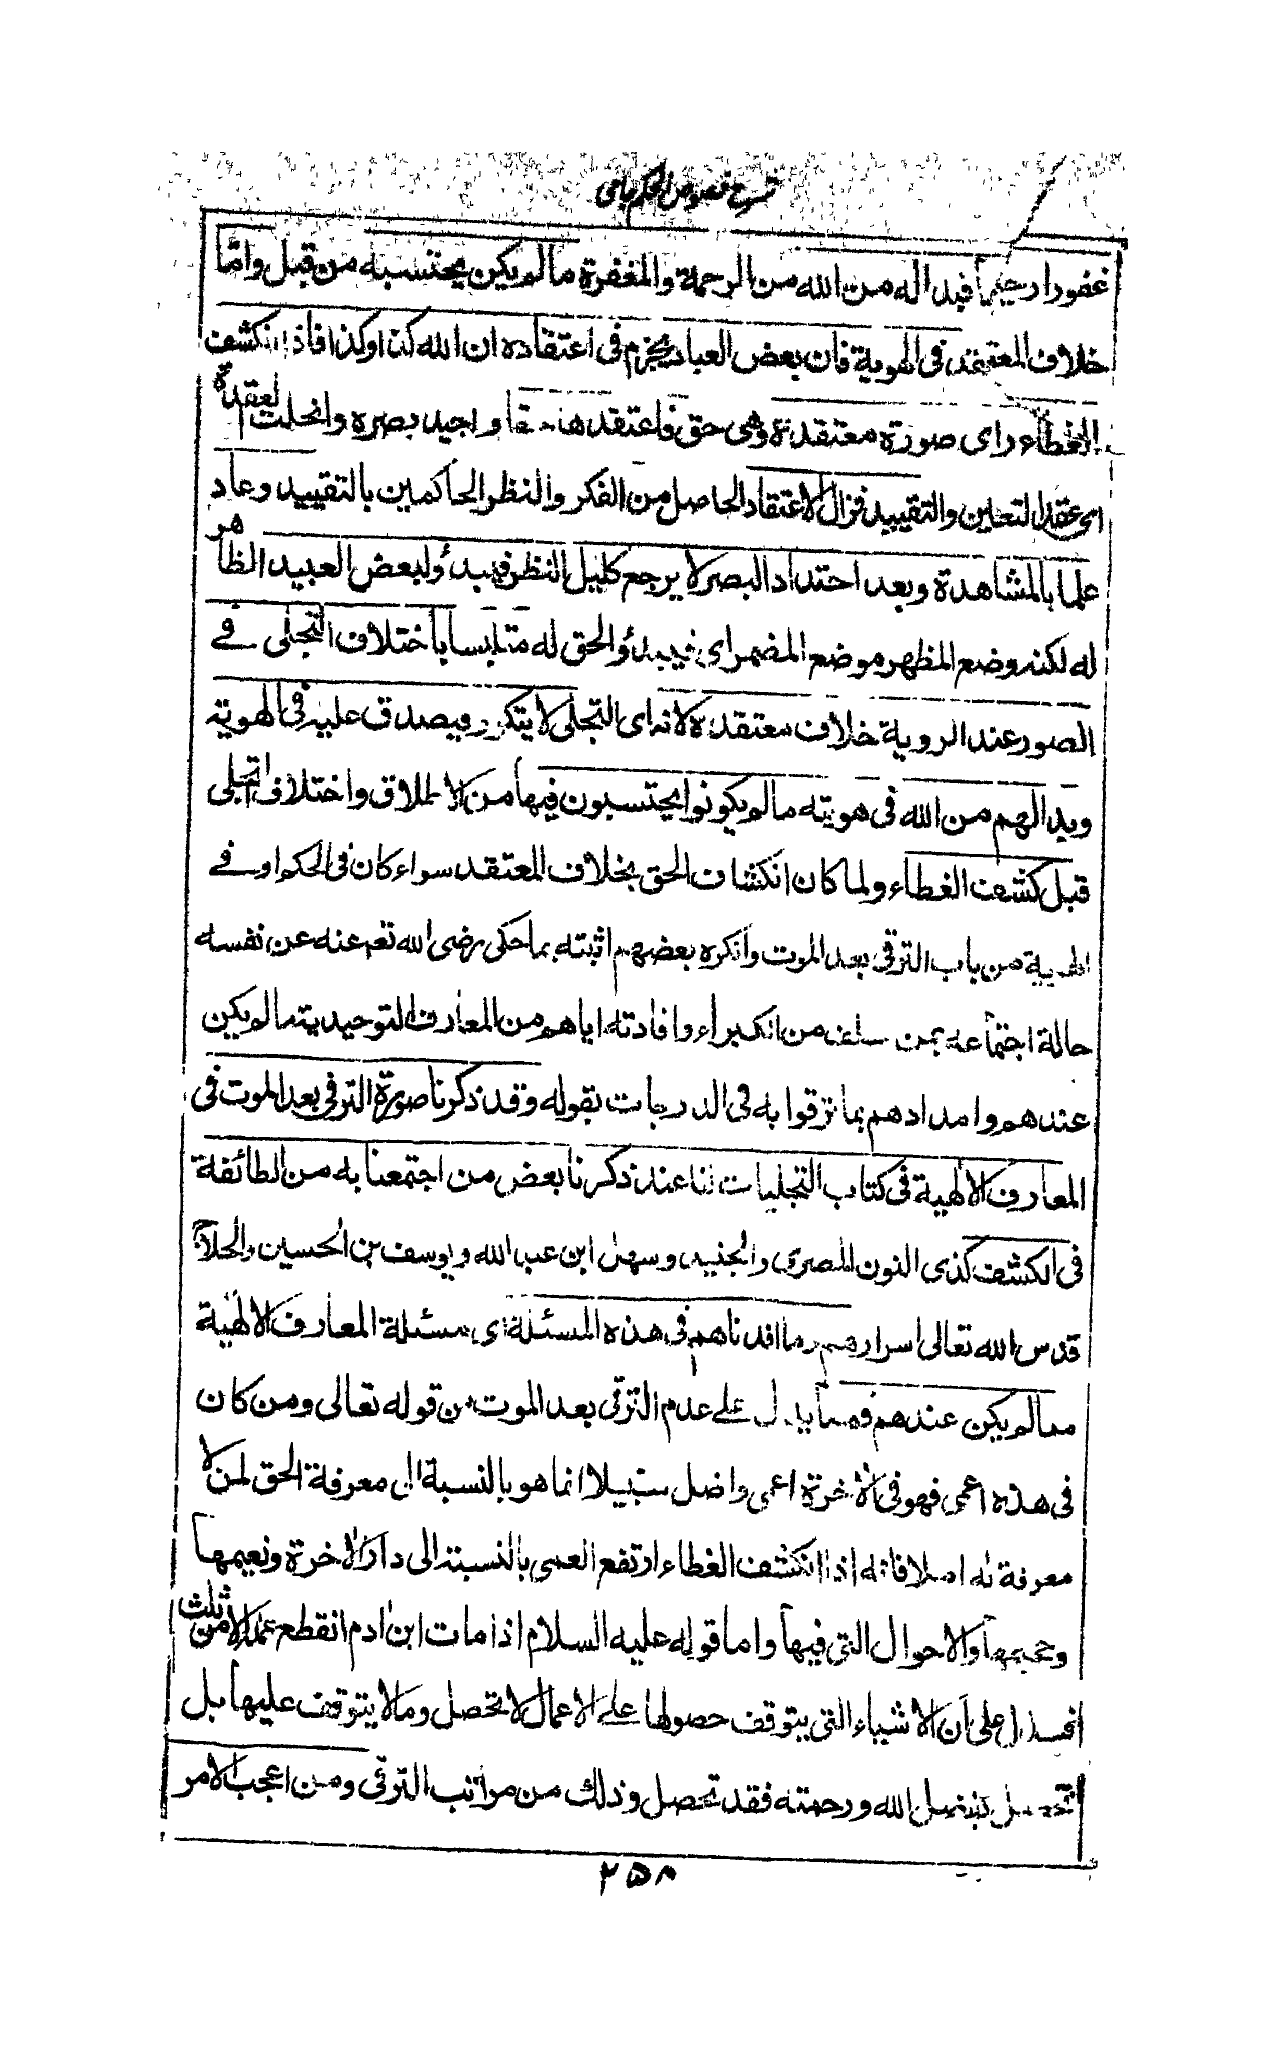 شرح فصوص الحكم جامى
غفورا رحيما فبدا له من الله من الرحمة والمغفرة مالم يكن يحتسبه من قبل واما
خلاف المعتقد فى الهوية فان بعض العباد يجزم فى اعتقاده ان الله كذا وكذا فاذا انكشف
الغطاء راى صورة معتقدة وهى حق فاعتقدها حقا واحيد بصره وانحلت العقدة
اى عقد التعين والتقييد فزال الاعتقاد الحاصل من الفكر والنظر الحاكمين بالتقييد وعاد
علما بالمشاهدة وبعد احتداد البصر لا يرجع كليل النظر فيبدؤ لبعض العبيد الظاهر
له لكنه وضع المظهر موضع المضمر اى فيبدؤ الحق له متلبسا باختلاف التجلى فے
الصور عند الروية خلاف معتقده لانه اى التجلى لا يتكرر فيصدق عليه فى الهوية
وبدا لهم من الله فى هويته مالم يكونوا يحتسبون فيها من الاطلاق واختلاف التجلى
قبل كشف الغطاء ولما كان انكشاف الحق بخلاف المعتقد سواء كان فى الحكم او فے
الهوية من باب الترقى بعد الموت وانكره بعضهم اثبته بما حكى رضى الله تعم عنه عن نفسه
حالة اجتماعه بمن سلف من الكبراء وافادته اياهم من المعارف التوحيدية مالم يكن
عندهم وامدادهم بما ترقوا به فى الدرجات بقوله وقد ذكرنا صورة الترقى بعد الموت فى
المعارف الالهية فى كتاب التجليات لنا عند ذكرنا بعض من اجتمعنا به من الطائفة
فى الكشف كذى النون المصرى والجنيد وسهل ابن عبد الله ويوسف بن الحسين والحلاج
قدس الله تعالى اسرارهم وما افدناهم فى هذه المسئلة اى مسئلة المعارف الالهية
مما لم يكن عندهم فما يدل على عدم الترقى بعد الموت من قوله تعالى ومن كان
فى هذه اعمى فهو فى الاخرة اعمى واضل سبيلا انما هو بالنسبة الى معرفة الحق لمن لا
معرفة له اصلا فانه اذا انكشف الغطاء ارتفع العمى بالنسبة الى دار الاخرة ونعيمها
وجحيمها والاحوال التى فيها واما قوله عليه السلام اذا مات ابن ادم انقطع عمله الا من ثلث
فيدل على ان الاشياء التى يتوقف حصولها على الاعمال لا تحصل وما لا يتوقف عليها بل
تحصل بفضل الله ورحمته فقد تحصل وذلك من مراتب الترقى ومن اعجب الامر
٢٥٨